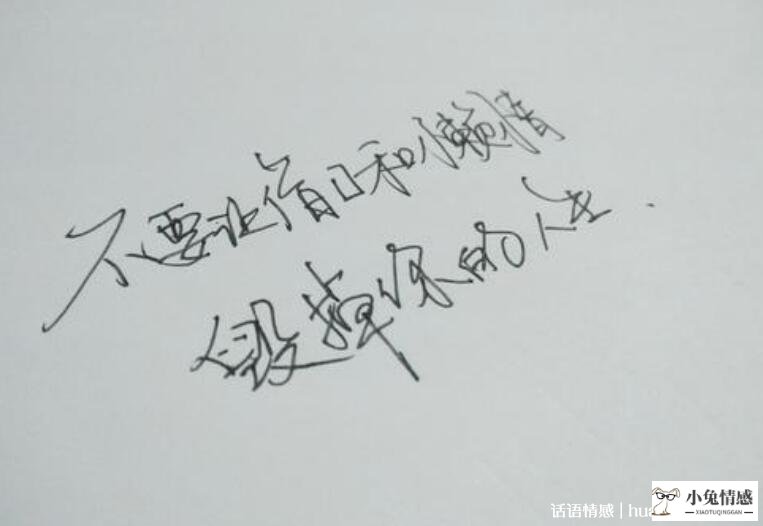 不要让借口和懒惰
毁掉你的人生.
话语情感 | hua
小兔情感
XIAOTUQINGGAN